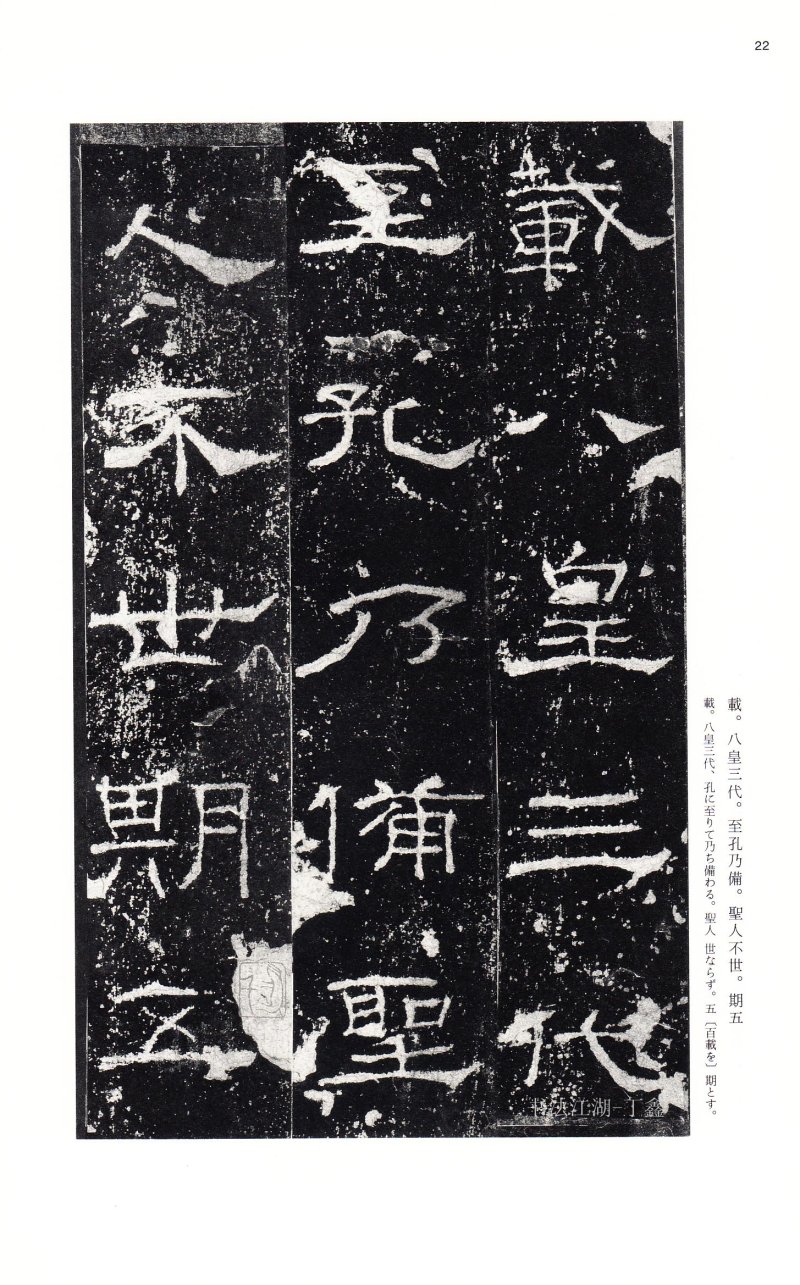 22
載八皇三代
至孔乃備聖
人不世期五
載。八皇三代。至孔乃備。聖人不世。期五
載。八皇三代、孔に至りて乃ち備わる。聖人 世ならず。五〔百載を〕期とす。
江湖-丁鑫